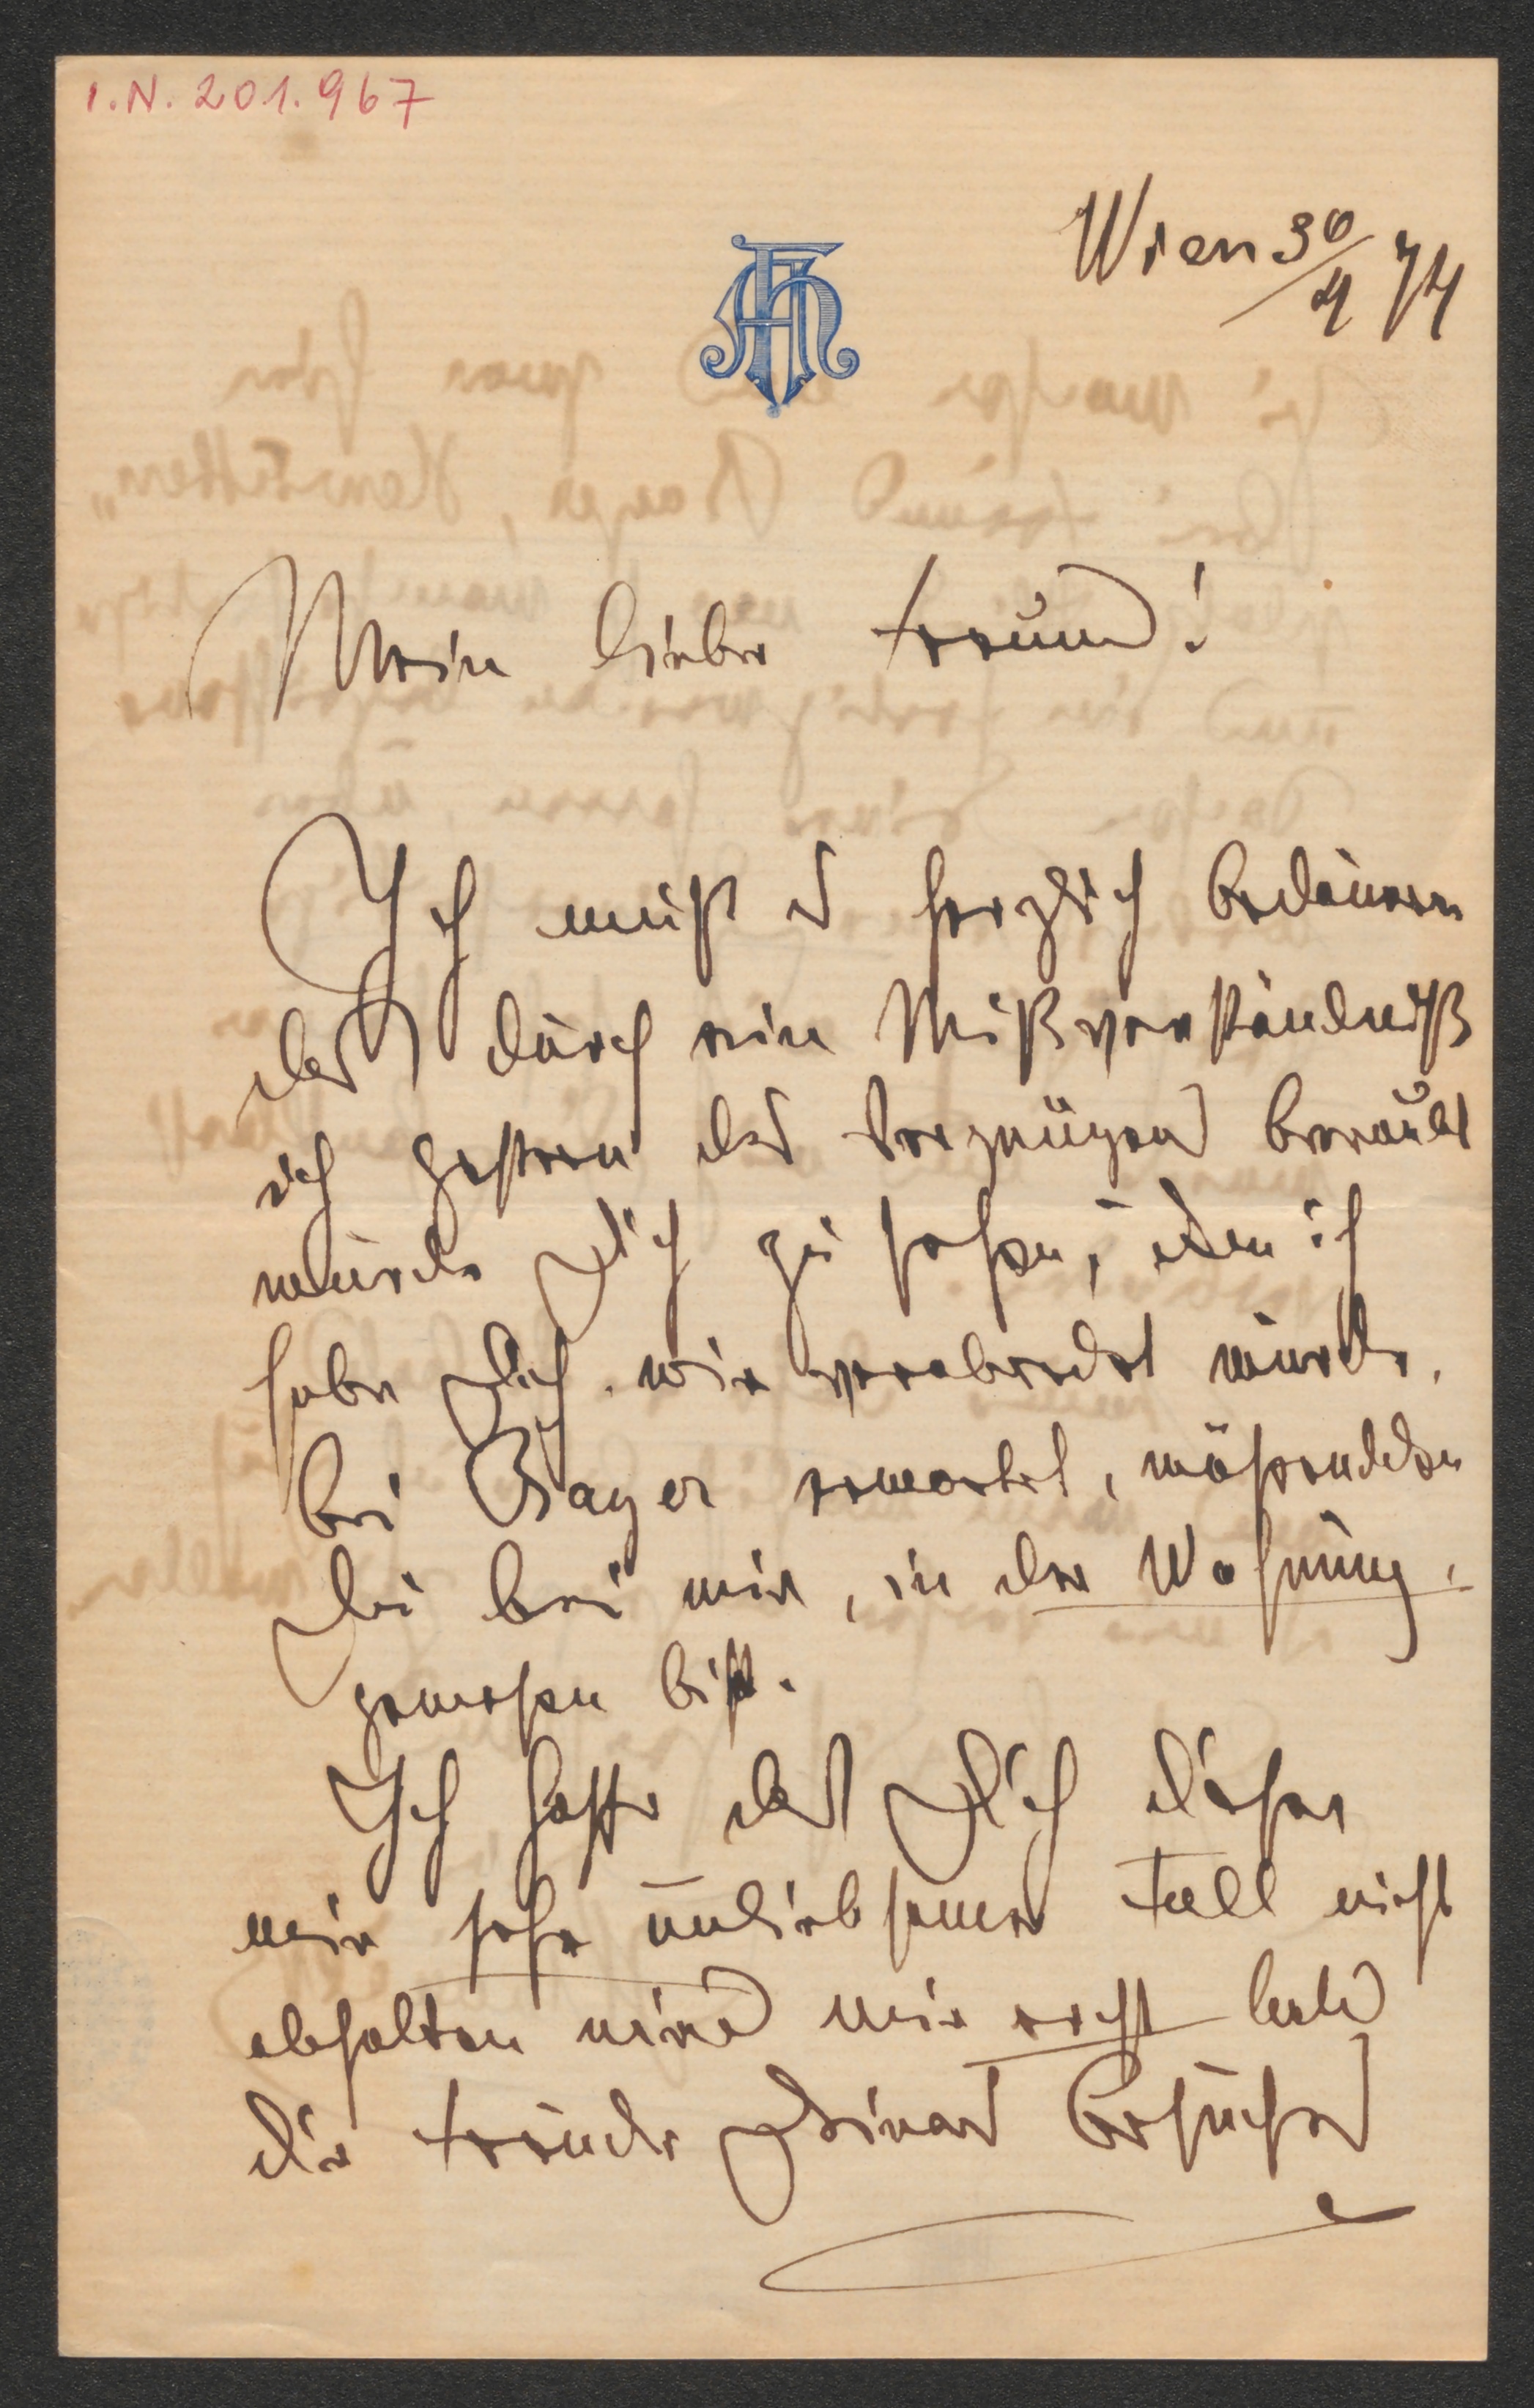 I.N. 201.967
Wien 30/4 74
Mein lieber Freund!
Ich muß es herzlich bedauern
daß durch ein Mißverständniß
ich gestern des Vergnügens beraubt
wurde Dich zu sehen, denn ich
habe Dich, wie verabredet wurde,
bei Bayer erwartet, während dem
Du bei mir, in der Wohnung,
gewesen bist.
Ich hoffe daß Dich dieser
mir sehr unliebsame Fall nicht
abhalten wird mir recht bald
die Freude Deines Besuches